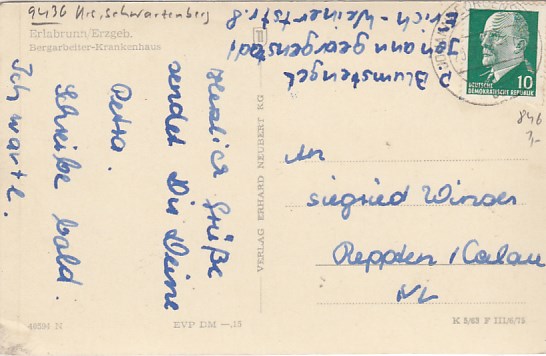 9436 Krs. Schwartenberg
Erlabrunn/Erzgeb.
Bergarbeiter-Krankenhaus
Herzlich Grüße
sendet Dir Deine
Petra.
Schreibe bald.
Ich warte.
48594 N
EVP DM —.15
VERLAG ERHARD NEUBERT KG
Johanngeorgenstadt
Erich-Weinertstr. 8
DEUTSCHE
DEMOKRATISCHE REPUBLIK
10
846
An
Siegfried Winger
Reppden / Calau
K 5/63 F III/6/75